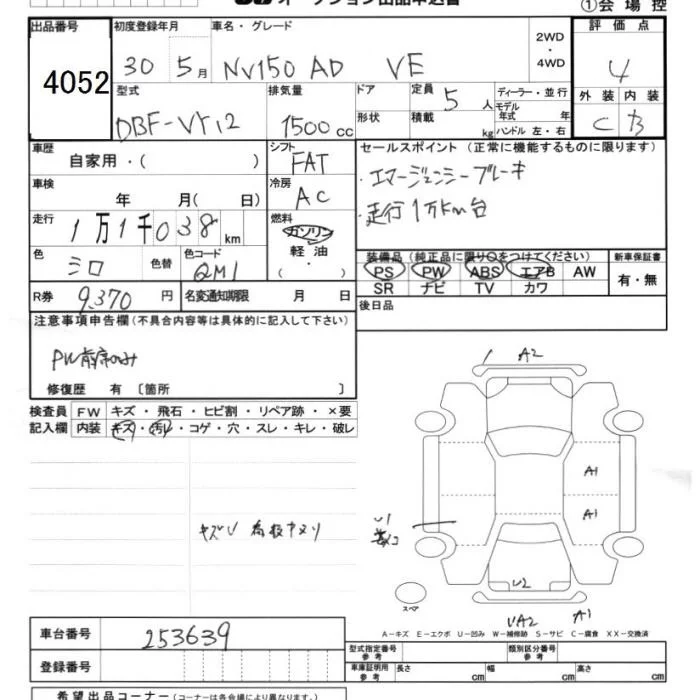 オークション出品申込書
①会場控
出品番号
4052
初度登録年月
30 5月
車名・グレード
NV150 AD VE
2WD
・
4WD
評価点
4
外装 内装
C B
型式
DBF-VY12
排気量
1500cc
ドア
形状
定員 5人
積載 kg
ディーラー・並行
モデル
年式 年
ハンドル 左・右
車歴
自家用・( )
シフト
FAT
車検
年 月( 日)
冷房
AC
走行
1万1千038km
燃料
ガソリン
軽油
( ・ )
色
シロ
色替
色コード
QM1
R券
9,370円
名変通知期限 月 日
セールスポイント (正常に機能するものに限ります)
・エマージェンシーブレーキ
・走行1万km台
装備品 (純正品に限り○をつけてください)
PS PW ABS エアB AW
SR ナビ TV カワ
新車保証書
有・無
後日品
注意事項申告欄 (不具合内容等は具体的に記入して下さい)
PW前席のみ
修復歴 有 〔箇所 〕
検査員 FW キズ・飛石・ヒビ割・リペア跡・×要
記入欄 内装 キズ・汚れ・コゲ・穴・スレ・キレ・破レ
キズU
A2
A1
A1
U1
U2
UA2
A1
スペア
A-キズ E-エクボ U-凹み W-補修跡 S-サビ C-腐食 XX-交換済
車台番号
253639
登録番号
型式指定番号
参考
類別区分番号
参考
車庫証明用
参考
長さ cm 幅 cm 高さ cm
希望出品コーナー (コーナーは各会場により異なります。)